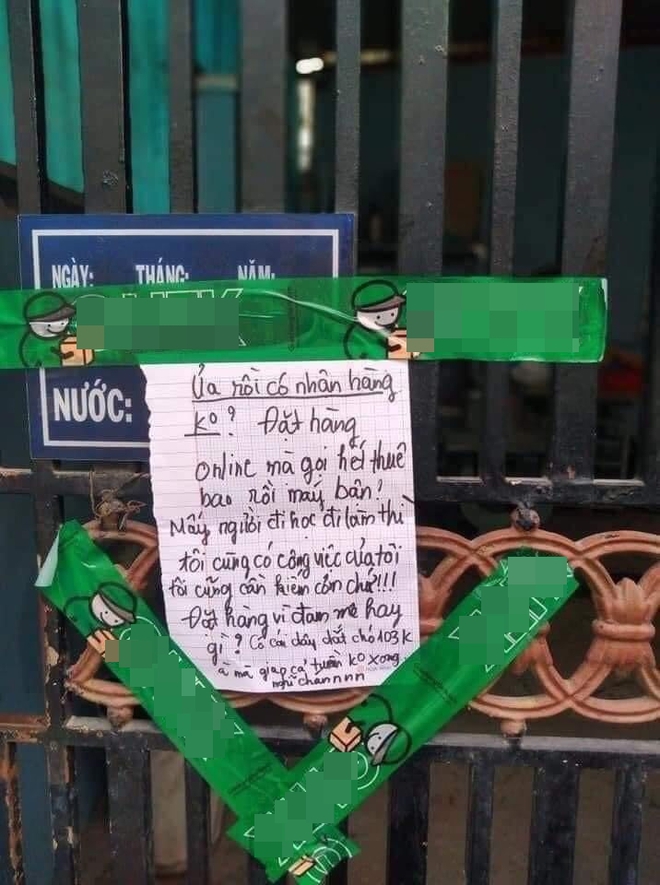 NGÀY: THÁNG: NĂM:
NƯỚC:
Ủa rồi có nhân hàng
ko? Đặt hàng
online mà gọi hết thuê
bao rồi máy bân!
Mấy người đi học đi làm thì
tôi cũng có công việc của tôi
tôi cũng cần kiếm cơm chứ!!!
Đặt hàng vì đam mê hay
gì? Có cái dây dắt chó 103K
à mà giao cả tuần ko xong
nghĩ channnn